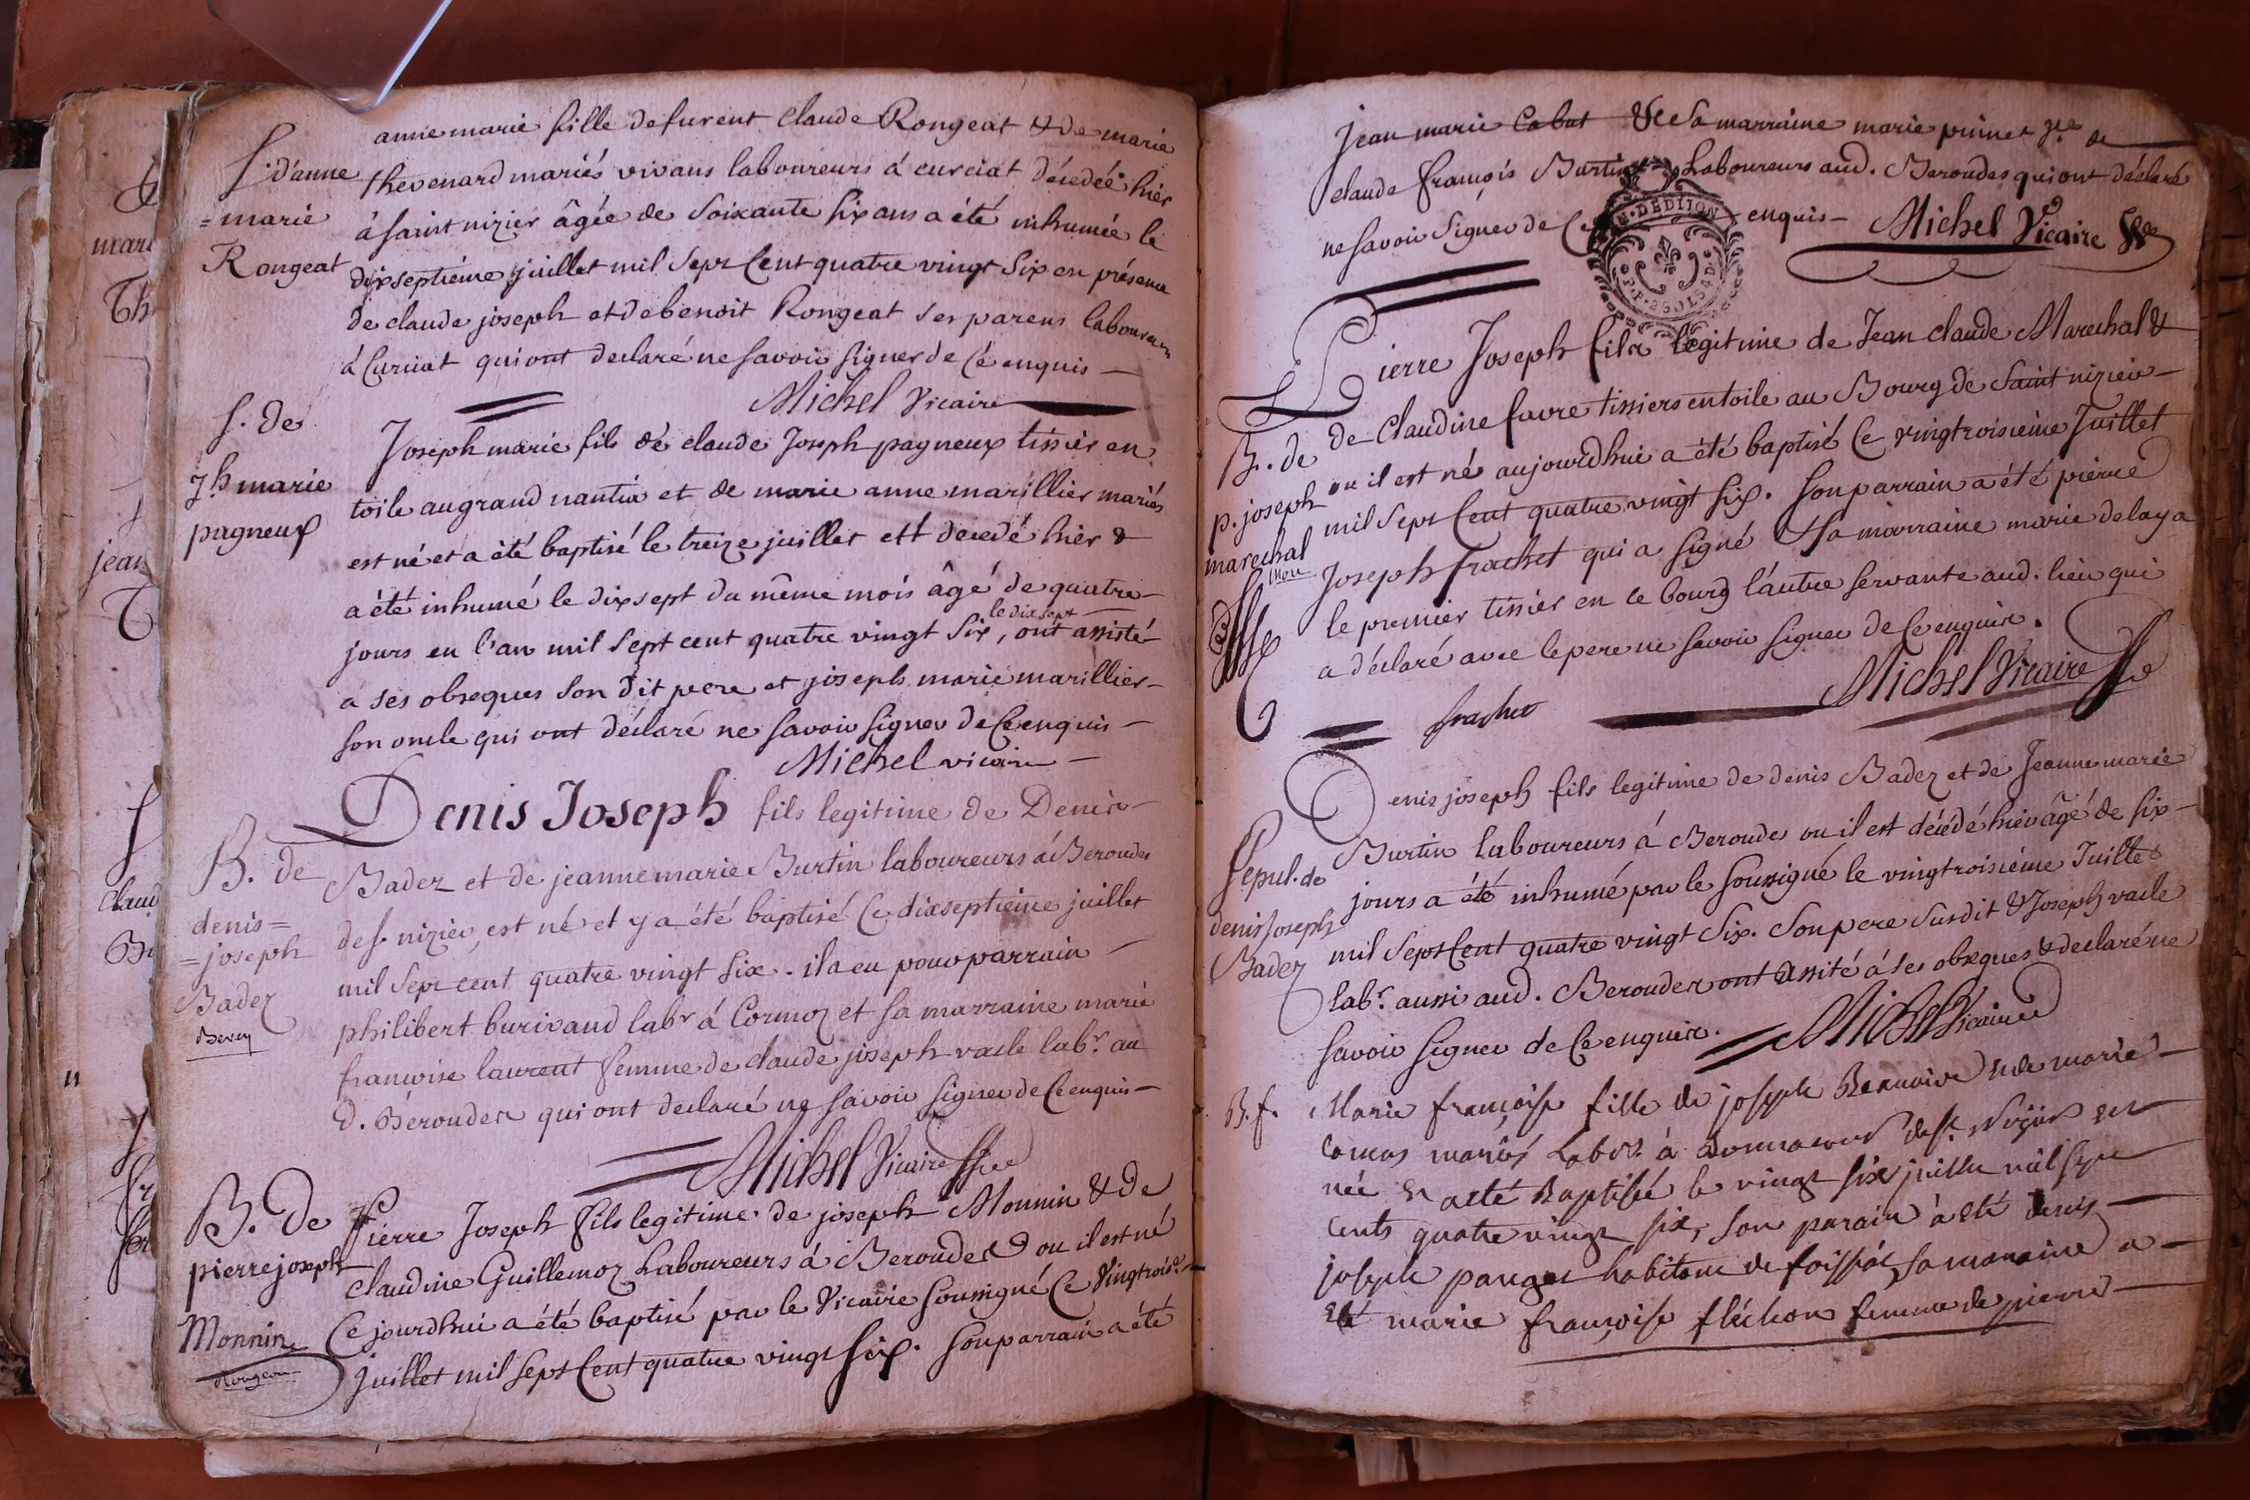 S. d'anne
= marie
Rongeat
anne marie fille de furent Claude Rongeat & de marie
thevenard mariés vivans laboureurs á curciat décedée hiér
á saint nizier âgée de soixante six ans a été inhumée le
dixseptiéme juillet mil sept Cent quatre vingt six en présence
de claude joseph et de benoit Rongeat ses parens laboureurs
á Curciat qui ont declaré ne savoir signer de Cé enquis —
Michel Vicaire
S. de
Jh marie
pagneux
Joseph marie fils de claude Joseph pagneux tissier en
toile au grand nantia et de marie anne marillier mariés
est né et a été baptisé le treize juillet est decedé hiér &
a été inhumé le dixsept du même mois âgé de quatre —
jours en l'an mil sept cent quatre vingt six, le dixsept ont assisté
a ses obseques son dit pere et joseph marie marillier —
son oncle qui ont déclaré ne savoir signer de Ce enquis —
Michel vicaire —
B. de
denis =
= joseph
Badez
Denis Joseph fils legitime de Denis —
Badez et de jeanne marie Burtin laboureurs á Beroudes
de s. nizier, est né et y a été baptisé Ce dixseptieme juillet
mil sept cent quatre vingt six. il a eu pour parrain —
philibert burivand labr á Cormoz et sa marraine marie
francoise laurent femme de claude joseph vaile labr. au
d. Béroudes qui ont declaré ne savoir signer de Ce enquis —
Michel Vicaire
B. de
pierre joseph
Monnin
Rongeon
Pierre Joseph fils legitime de joseph Monnin & de
claudine Guillemoz Laboureurs á Beroudes ou il est né
Ce jourdhui a été baptisé par le Vicaire soussigné Ce Vingtrois.e
juillet mil sept Cent quatre vingt six. Son parrain a été
jean marie Cabut & sa marraine marie de
claude françois Burtin Laboureurs aud. Beroudes qui ont déclaré
ne savoir signer de Ce enquis — Michel Vicaire
DEDITION
B. de
p. joseph
marechal
Pierre Joseph fils legitime de Jean claude Marechal &
de Claudine favre tissiers en toile au Bourg de Saint nizier —
ou il est né aujourdhui a été baptisé Ce vingtroisieme Juillet
mil sept Cent quatre vingt six. Son parrain a été pierre
Joseph frachet qui a signé & sa marraine marie delaya
le premier tissier en ce bourg l'autre servante aud. lieu qui
a déclaré avec le pere ne savoir signer de Ce enquis.
frachet Michel Vicaire
Sepul. de
denis Joseph
Badez
Denis joseph fils legitime de denis Badez et de Jeanne marie
Burtin laboureurs á Beroudes ou il est décédé hiér âgé de six —
jours a été inhumé par le soussigné le vingtroisiéme Juillet
mil sept Cent quatre vingt six. Son pere susdit & Joseph vaile
labr. aussi aud. Beroudes ont assité á ses obseques & declaré ne
savoir signer de Ce enquis. Michel Vicaire
B. f.
Marie françoise fille de joseph & de marie —
comas mariés Labrs à de st Nizier est
née et a eté Baptisée le vingt six juillet mil sept
cents quatre vingt six, son parain à eté denis —
joseph panget habitant de foissiat, sa maraine a —
eté marie françoise fléchon femme de pierre —